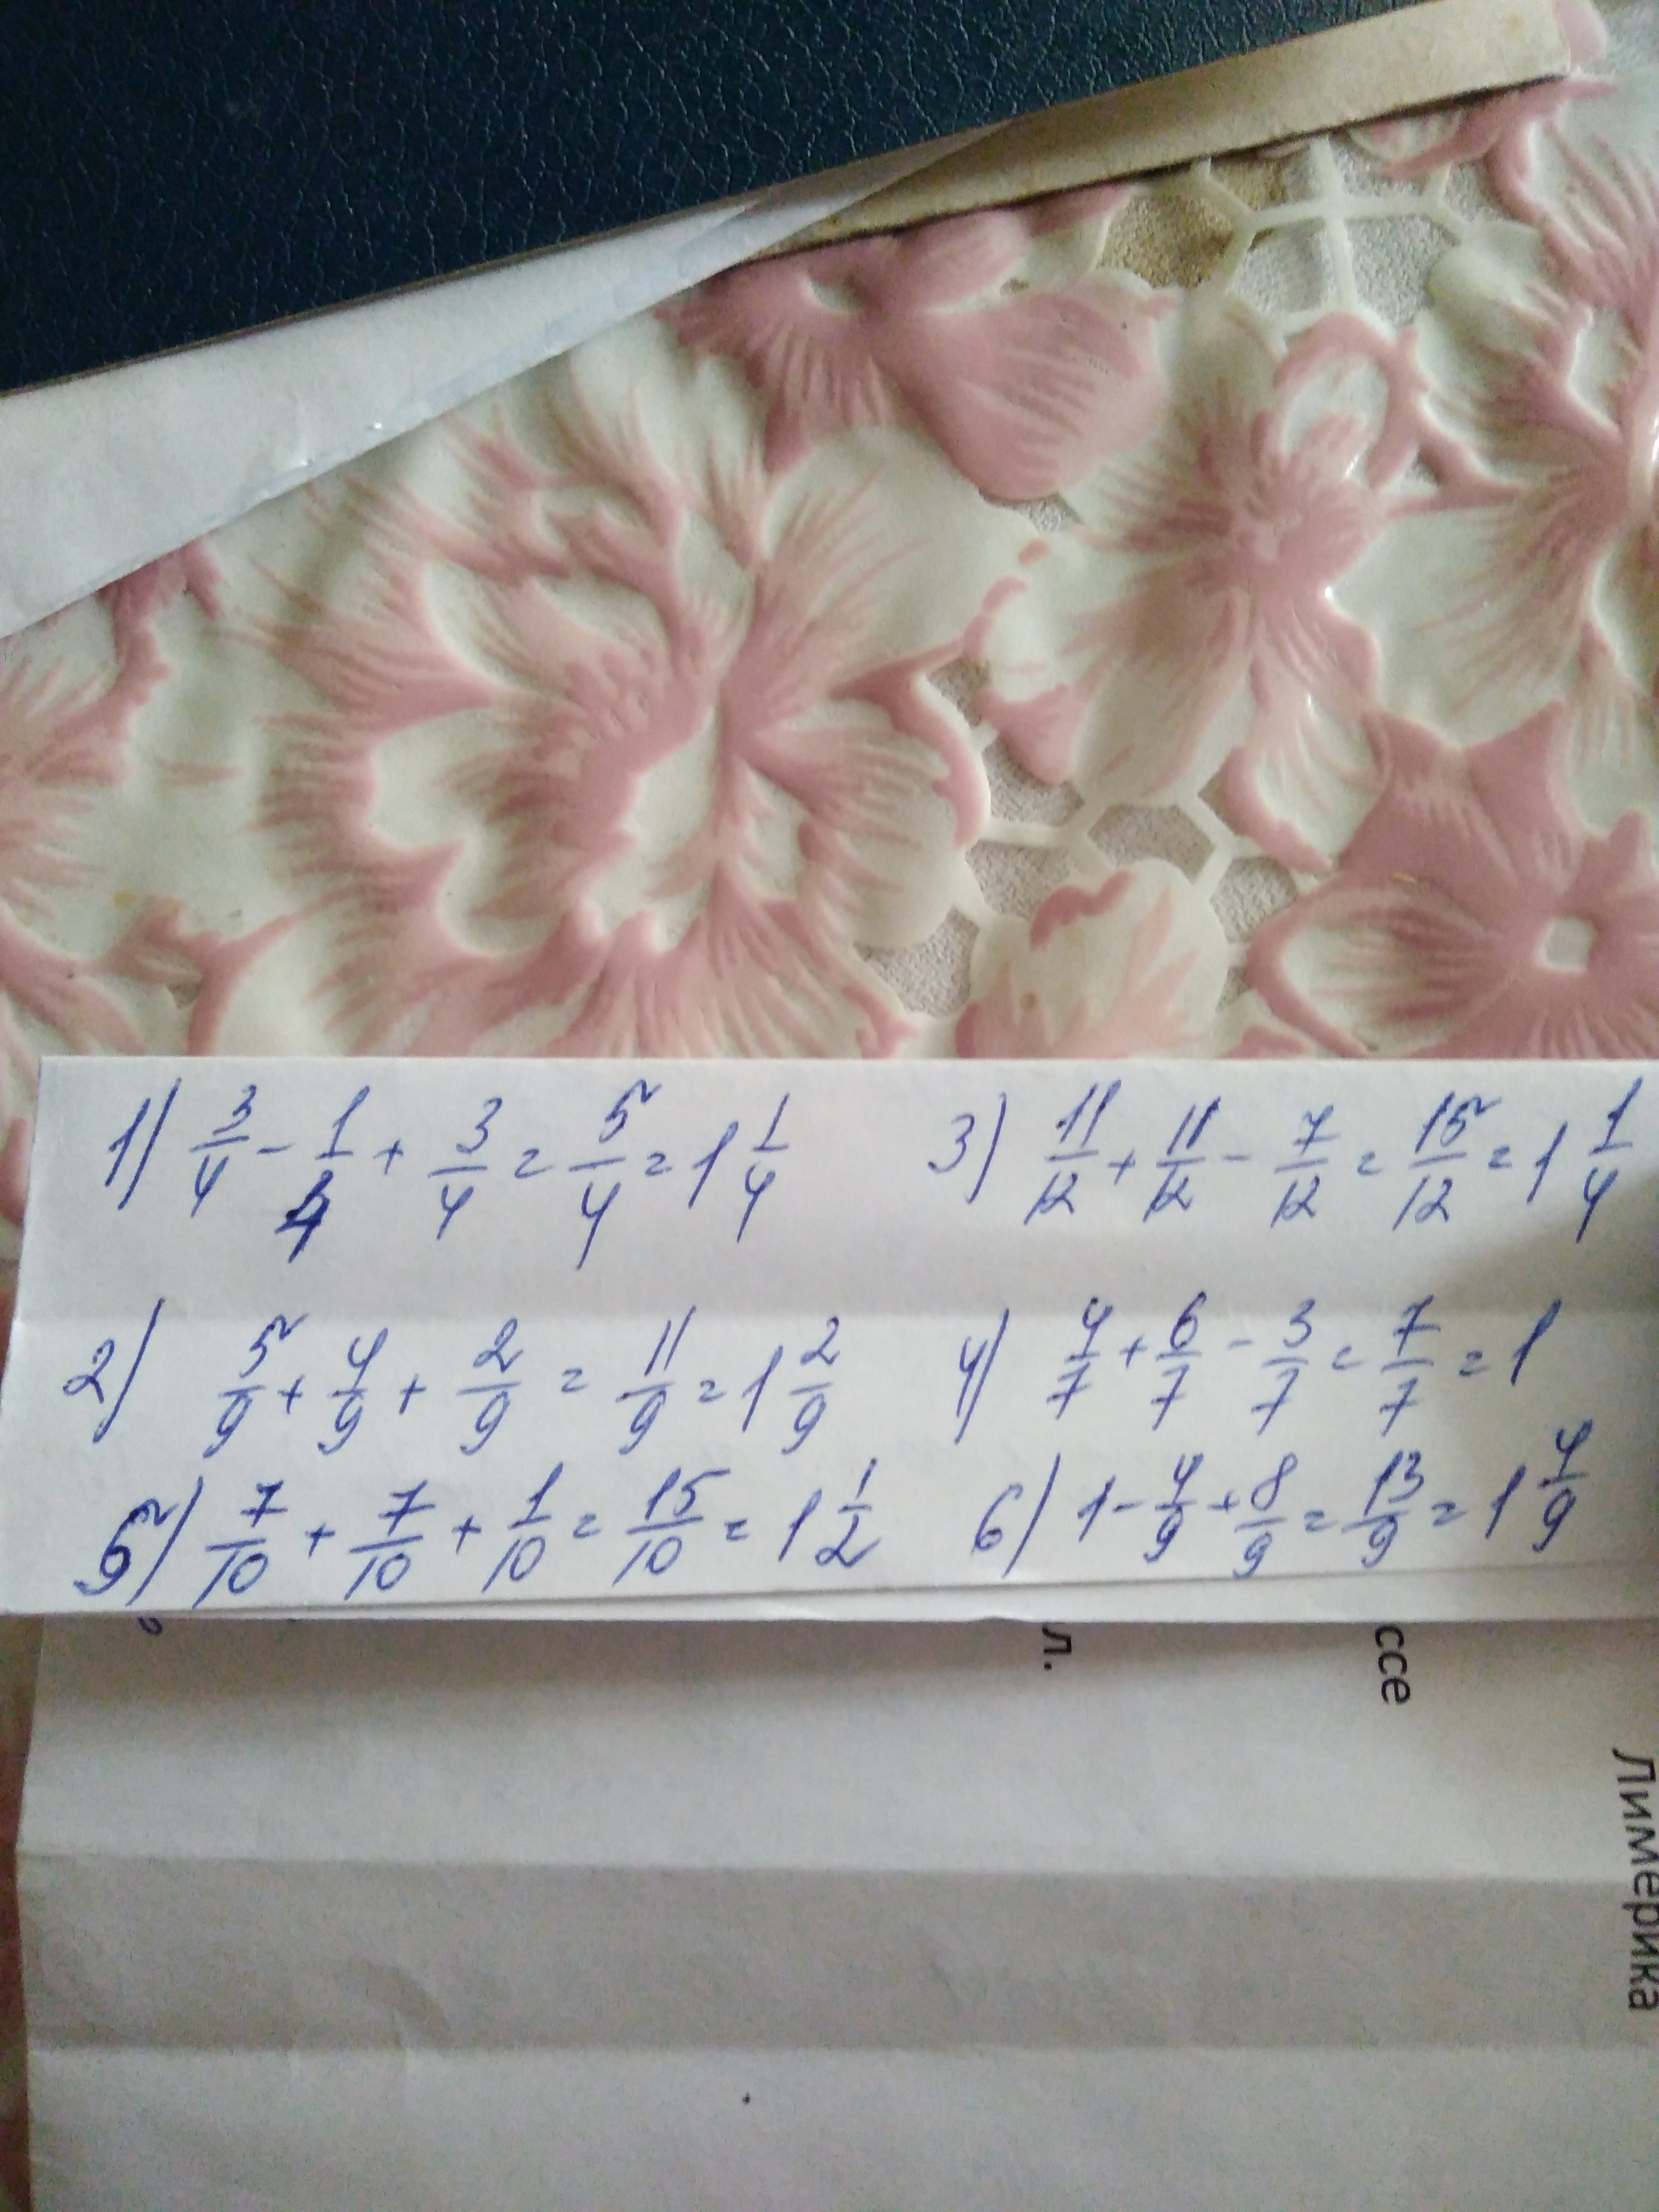 1) 3/4 - 1/4 + 3/4 = 5/4 = 1 1/4
3) 11/12 + 11/12 - 7/12 = 15/12 = 1 1/4
2) 5/9 + 4/9 + 2/9 = 11/9 = 1 2/9
4) 4/7 + 6/7 - 3/7 = 7/7 = 1
5) 7/10 + 7/10 + 1/10 = 15/10 = 1 1/2
6) 1 - 4/9 + 8/9 = 13/9 = 1 4/9
л.
ссе
Лимерика